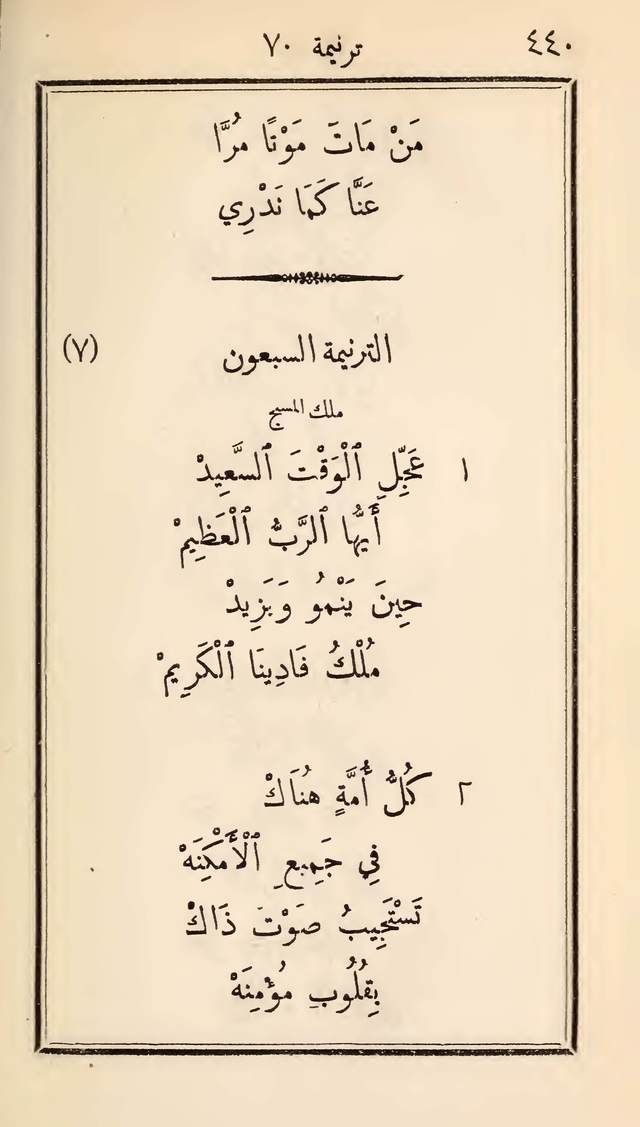 ٤٤٠ ترنيمة ٧٠
مَنْ مَاتَ مَوْتًا مُرًّا
عَنَّا كَمَا نَدْرِي
الترنيمة السبعون (٧)
ملك المسيح
١ عَجِّلِ ٱلْوَقْتَ ٱلسَّعِيدْ
أَيُّهَا ٱلرَّبُّ ٱلْعَظِيمْ
حِينَ يَنْمُو وَيَزِيدْ
مُلْكُ فَادِينَا ٱلْكَرِيمْ
٢ كُلُّ أُمَّةٍ هُنَاكْ
فِي جَمِيعِ ٱلْأَمْكِنَهْ
تَسْتَجِيبُ صَوْتَ ذَاكْ
بِقُلُوبِ مُؤْمِنَهْ